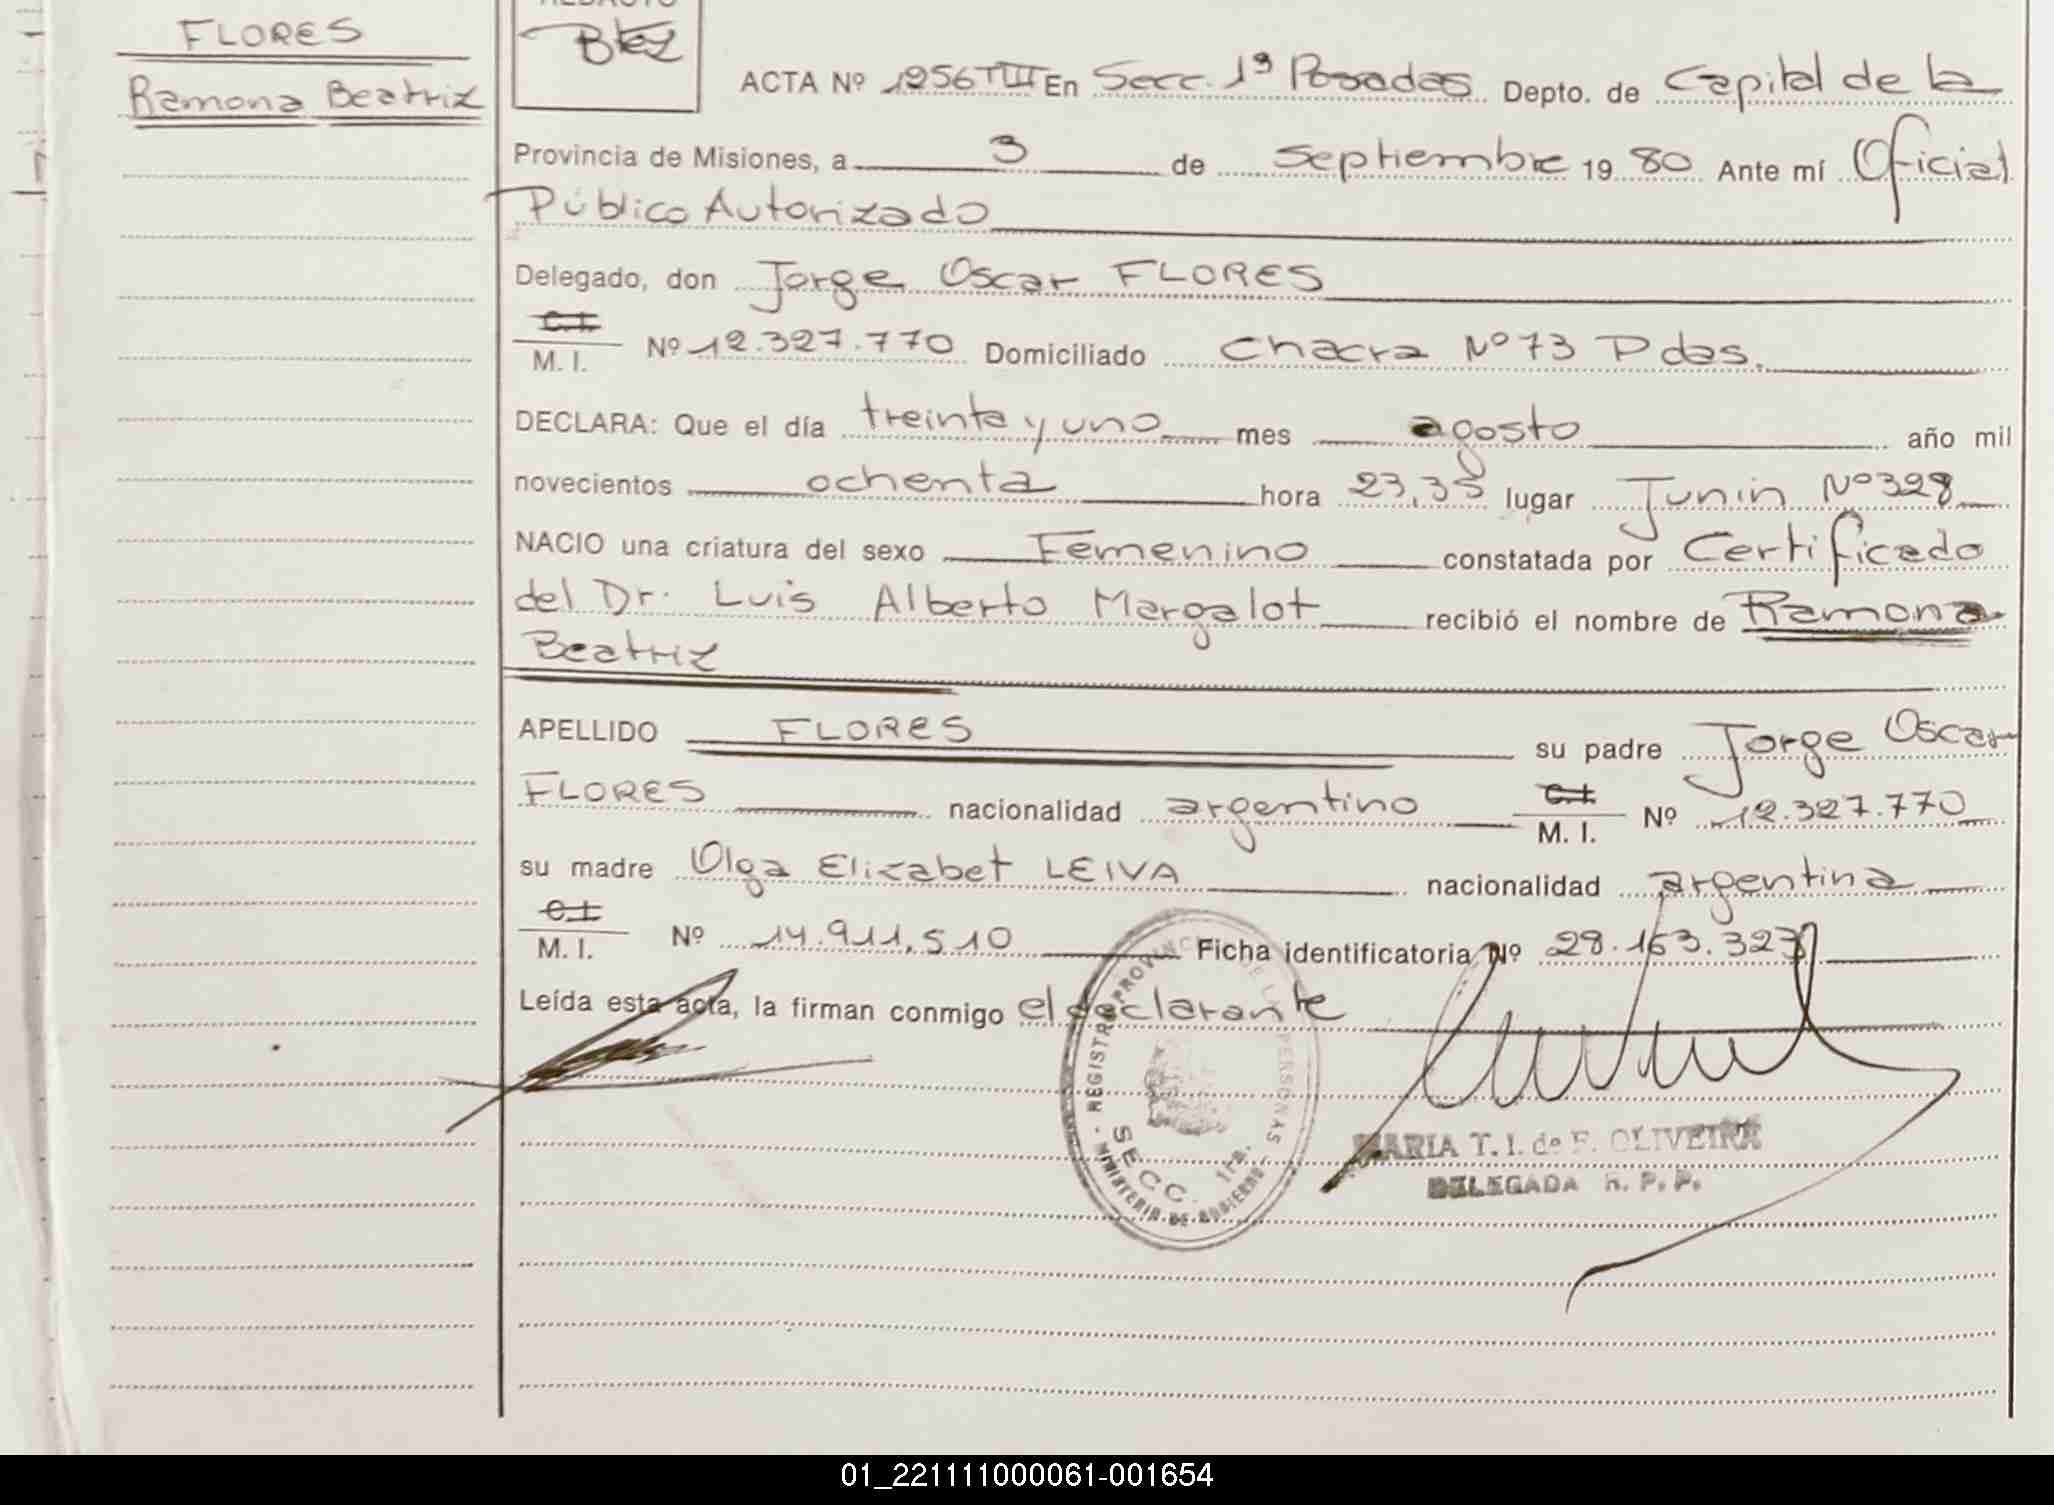 FLORES
Ramona Beatriz
REDACTO
ACTA Nº 1256 TIII En Secc. 1ª Posadas Depto. de Capital de la
Provincia de Misiones, a 3 de Septiembre 19 80 Ante mí Oficial
Público Autorizado
Delegado, don Jorge Oscar FLORES
C.I.
M. I. Nº 12.327.770 Domiciliado Chacra Nº 73 Pdas.
DECLARA: Que el día treinta y uno mes agosto año mil
novecientos ochenta hora 23,35 lugar Junin Nº 328
NACIO una criatura del sexo Femenino constatada por Certificado
del Dr. Luis Alberto Margalot recibió el nombre de Ramona
Beatriz
APELLIDO FLORES su padre Jorge Oscar
FLORES nacionalidad argentino C.I. M. I. Nº 12.327.770
su madre Olga Elizabet LEIVA nacionalidad argentina
C.I.
M. I. Nº 14.911.510 Ficha identificatoria Nº 28.163.327
Leída esta acta, la firman conmigo el declarante
REGISTRO PROVINCIAL DE LAS PERSONAS
SECC. 1ra.
MINISTERIO DE GOBIERNO
MARIA T. I. de F. OLIVEIRA
DELEGADA R. P. P.
01_221111000061-001654